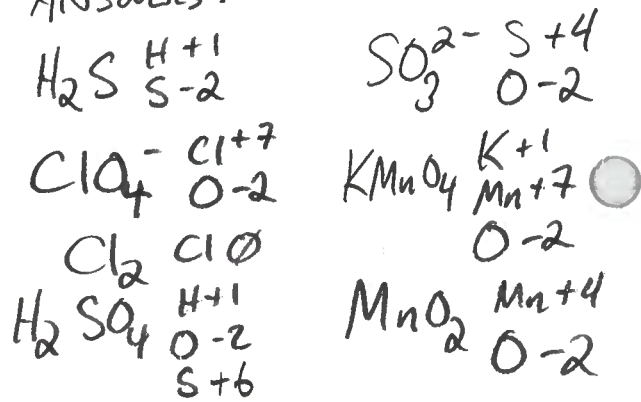 ANSWERS:
H₂S H +1
S -2
ClO₄⁻ Cl +7
O -2
Cl₂ Cl Ø
H₂SO₄ H +1
O -2
S +6
SO₃²⁻ S +4
O -2
KMnO₄ K +1
Mn +7
O -2
MnO₂ Mn +4
O -2